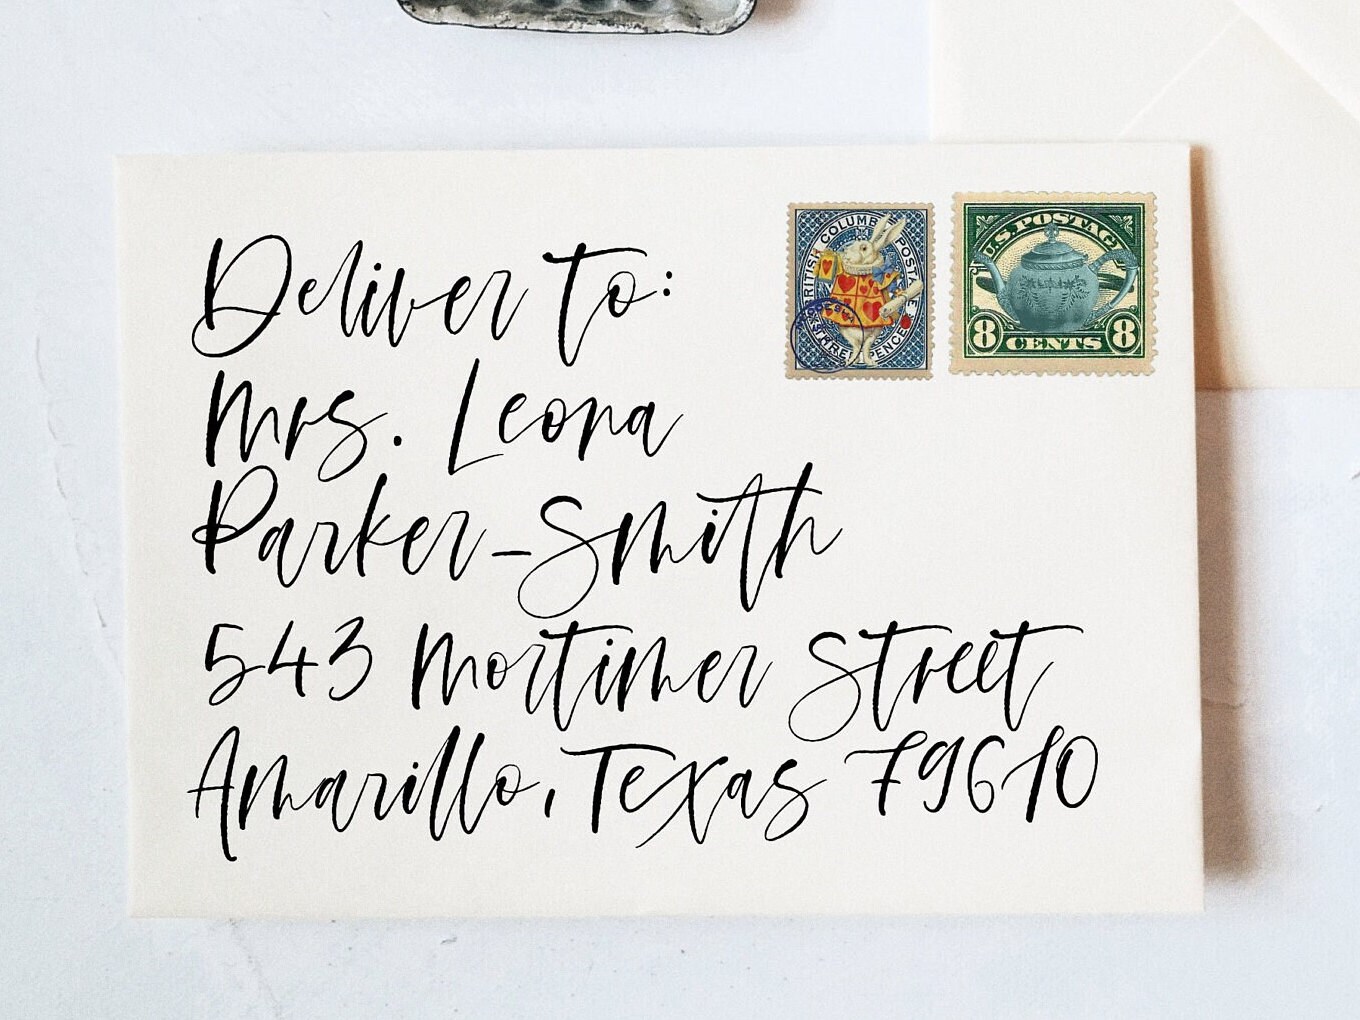 Deliver to:
Mrs. Leona
Parker-Smith
543 Mortimer Street
Amarillo, Texas 79610
BRITISH COLUMBIA POSTAGE
THREE PENCE
U.S. POSTAGE
8 CENTS 8